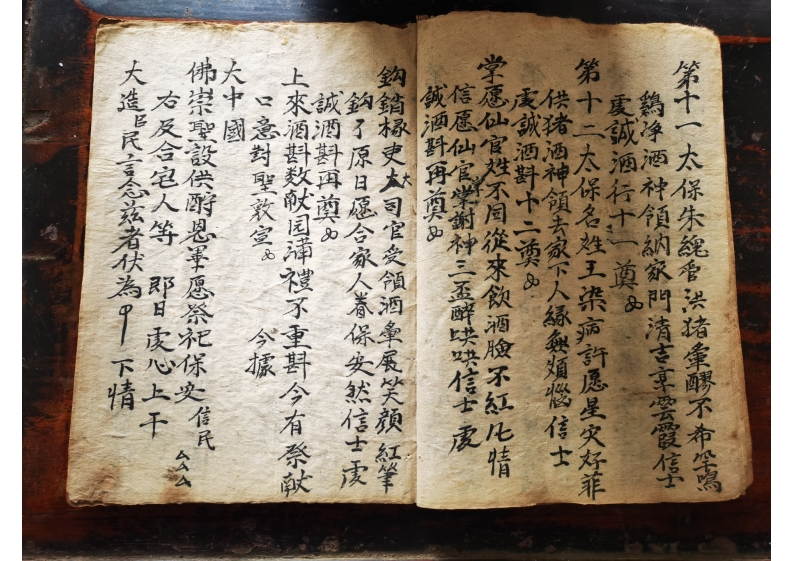 第十一太保朱總管洪猪羣醪不希罕鳴
鷄净酒神領納家門清吉享雲霞信士
虔誠酒行十一奠
第十二太保名姓王染病許愿星灾好菲
供猪酒神領去家下人緣無煩惱信士
虔誠酒斟十二奠
掌愿仙官姓不同從來飲酒臉不紅凡情
信愿仙官掌謝神三盃醉哄哄信士虔
誠酒斟再奠
鈎銷椽吏大司官受領酒羣展笑顔紅筆
鈎了原日愿合家人眷保安然信士虔
誠酒斟再奠
上來酒斟数献囘满禮不重斟今有祭献
口意對聖敦宣 今據
大中國
佛崇聖設供酧恩畢愿祭祀保安信民
右及合宅人等 即日虔心上干
大造臣民言念兹者伏為 下情